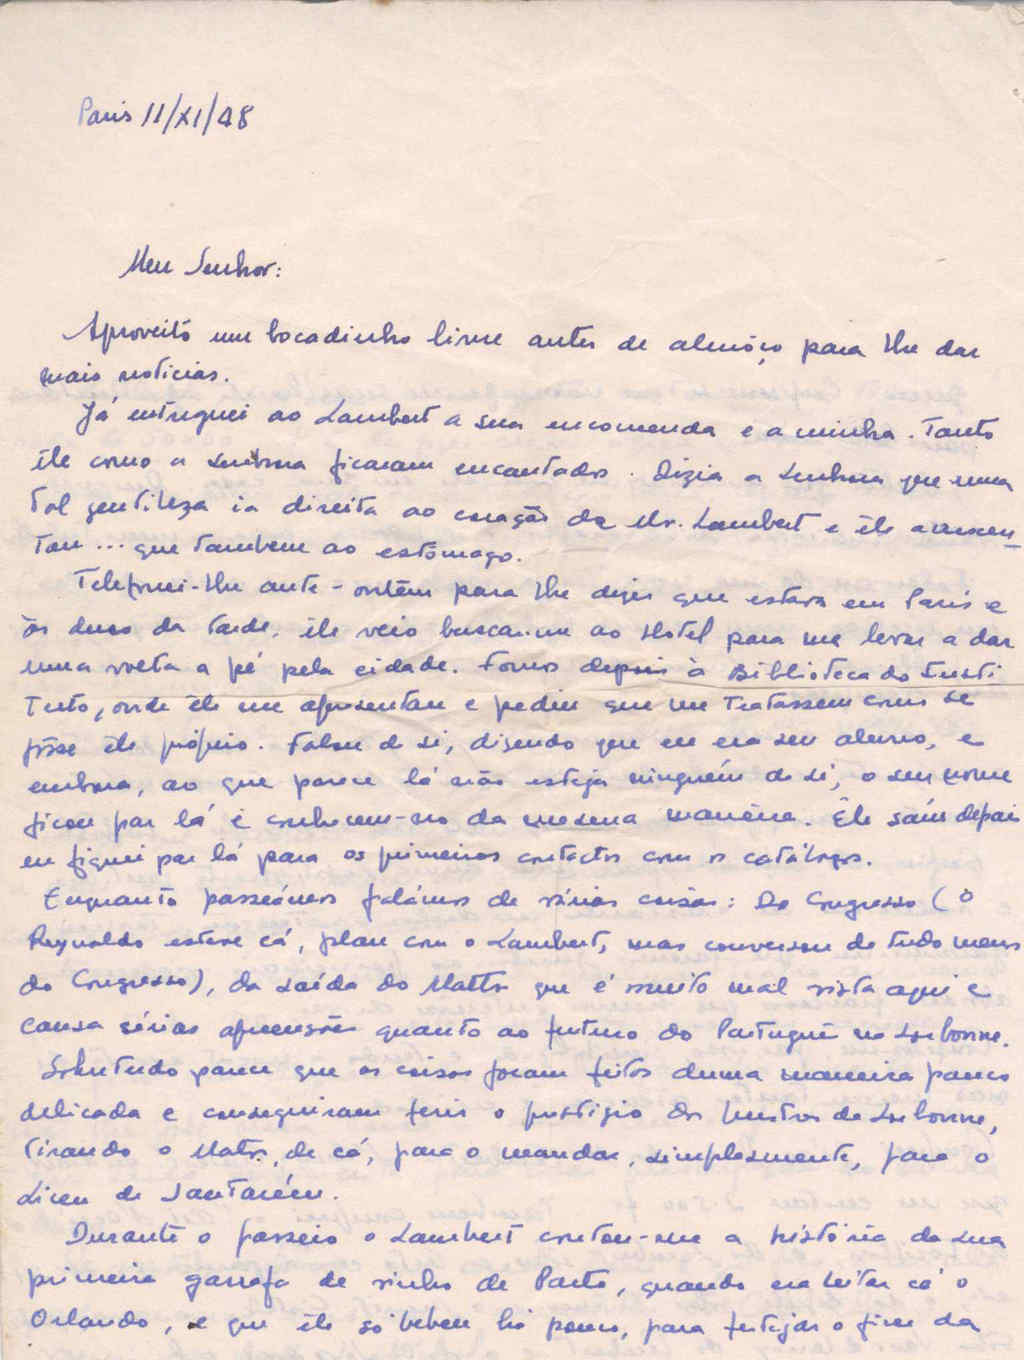 Paris 11/XI/48
Meu Senhor:
Aproveito um bocadinho livre antes de almôço para lhe dar
mais notícias.
Já entreguei ao Lambert a sua encomenda e a minha. Tanto
êle como a senhora ficaram encantados. Dizia a senhora que uma
tal gentileza ia direita ao coração de Mr. Lambert e êle acrescen-
tou ... que tambem ao estômago.
Telefonei-lhe ante-ontém para lhe dizer que estava em Paris e
às duas da tarde, êle veio buscar-me ao Hotel para me levar a dar
uma volta a pé pela cidade. Fomos depois à Biblioteca do Insti
tuto, onde êle me apresentou e pediu que me tratassem como se
fôsse êle próprio. Falou de si, dizendo que eu era seu aluno, e
embora, ao que parece lá não esteja ninguém de si, o seu nome
ficou por lá e conhecem-no da mesma maneira. Êle saíu depois
eu fiquei por lá para os primeiros contactos com os catálogos.
Enquanto passeámos falámos de várias coisas: Do Congresso (O
Reynaldo esteve cá, falou com o Lambert, mas conversou de tudo menos
do Congresso), da saída do Mattos que é muito mal vista aqui e
causa sérias apreensões quanto ao futuro do Português na Sorbonne.
Sobretudo parece que as coisas foram feitas duma maneira pouco
delicada e conseguiram ferir o prestígio dos mestres da Sorbonne,
tirando o Matos, de cá, para o mandar, simplesmente, para o
Liceu de Santarém.
Durante o passeio o Lambert contou-me a história da sua
primeira garrafa de vinho do Porto, quando era leitor cá o
Orlando, e que êle só bebeu há pouco, para festejar o fim da